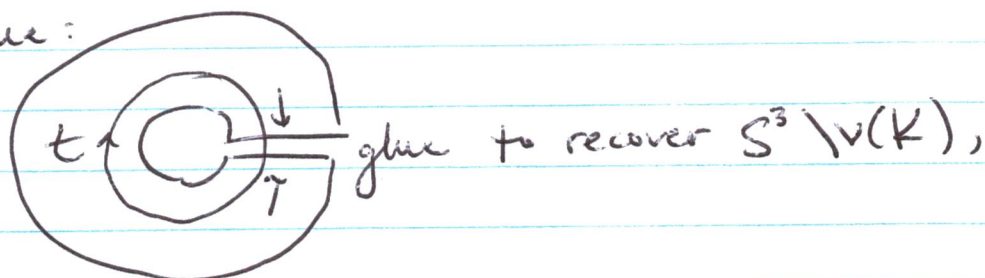 ue:
t glue to recover S³ \ν(K),